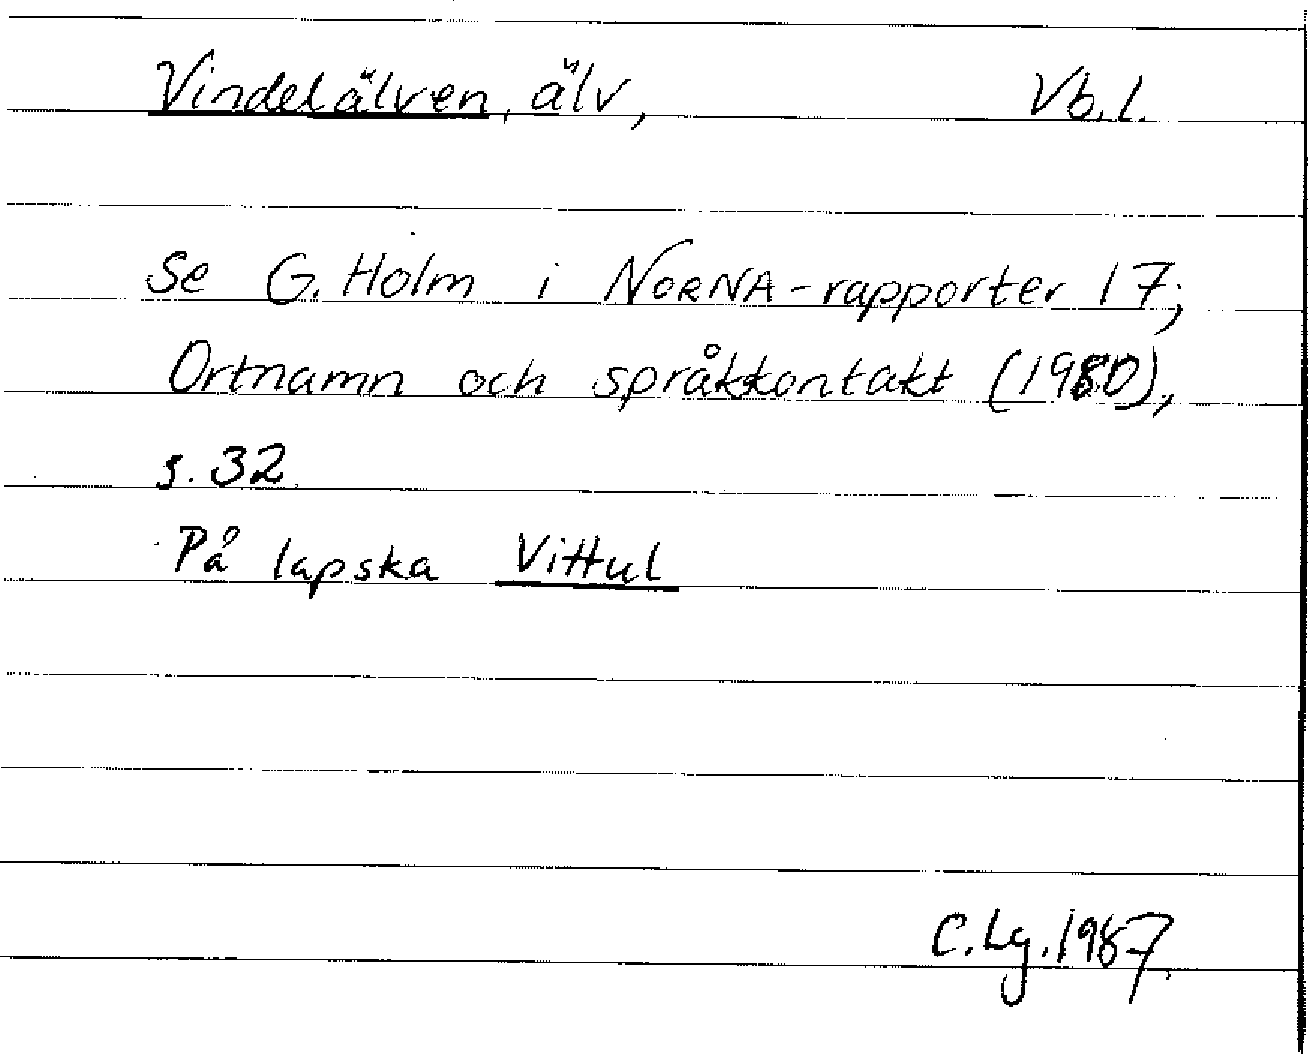 Vindelälven, älv, Vb. l.
Se G. Holm i NORNA-rapporter 17;
Ortnamn och språkkontakt (1980),
s. 32
På lapska Vittul
C. Lg. 1987